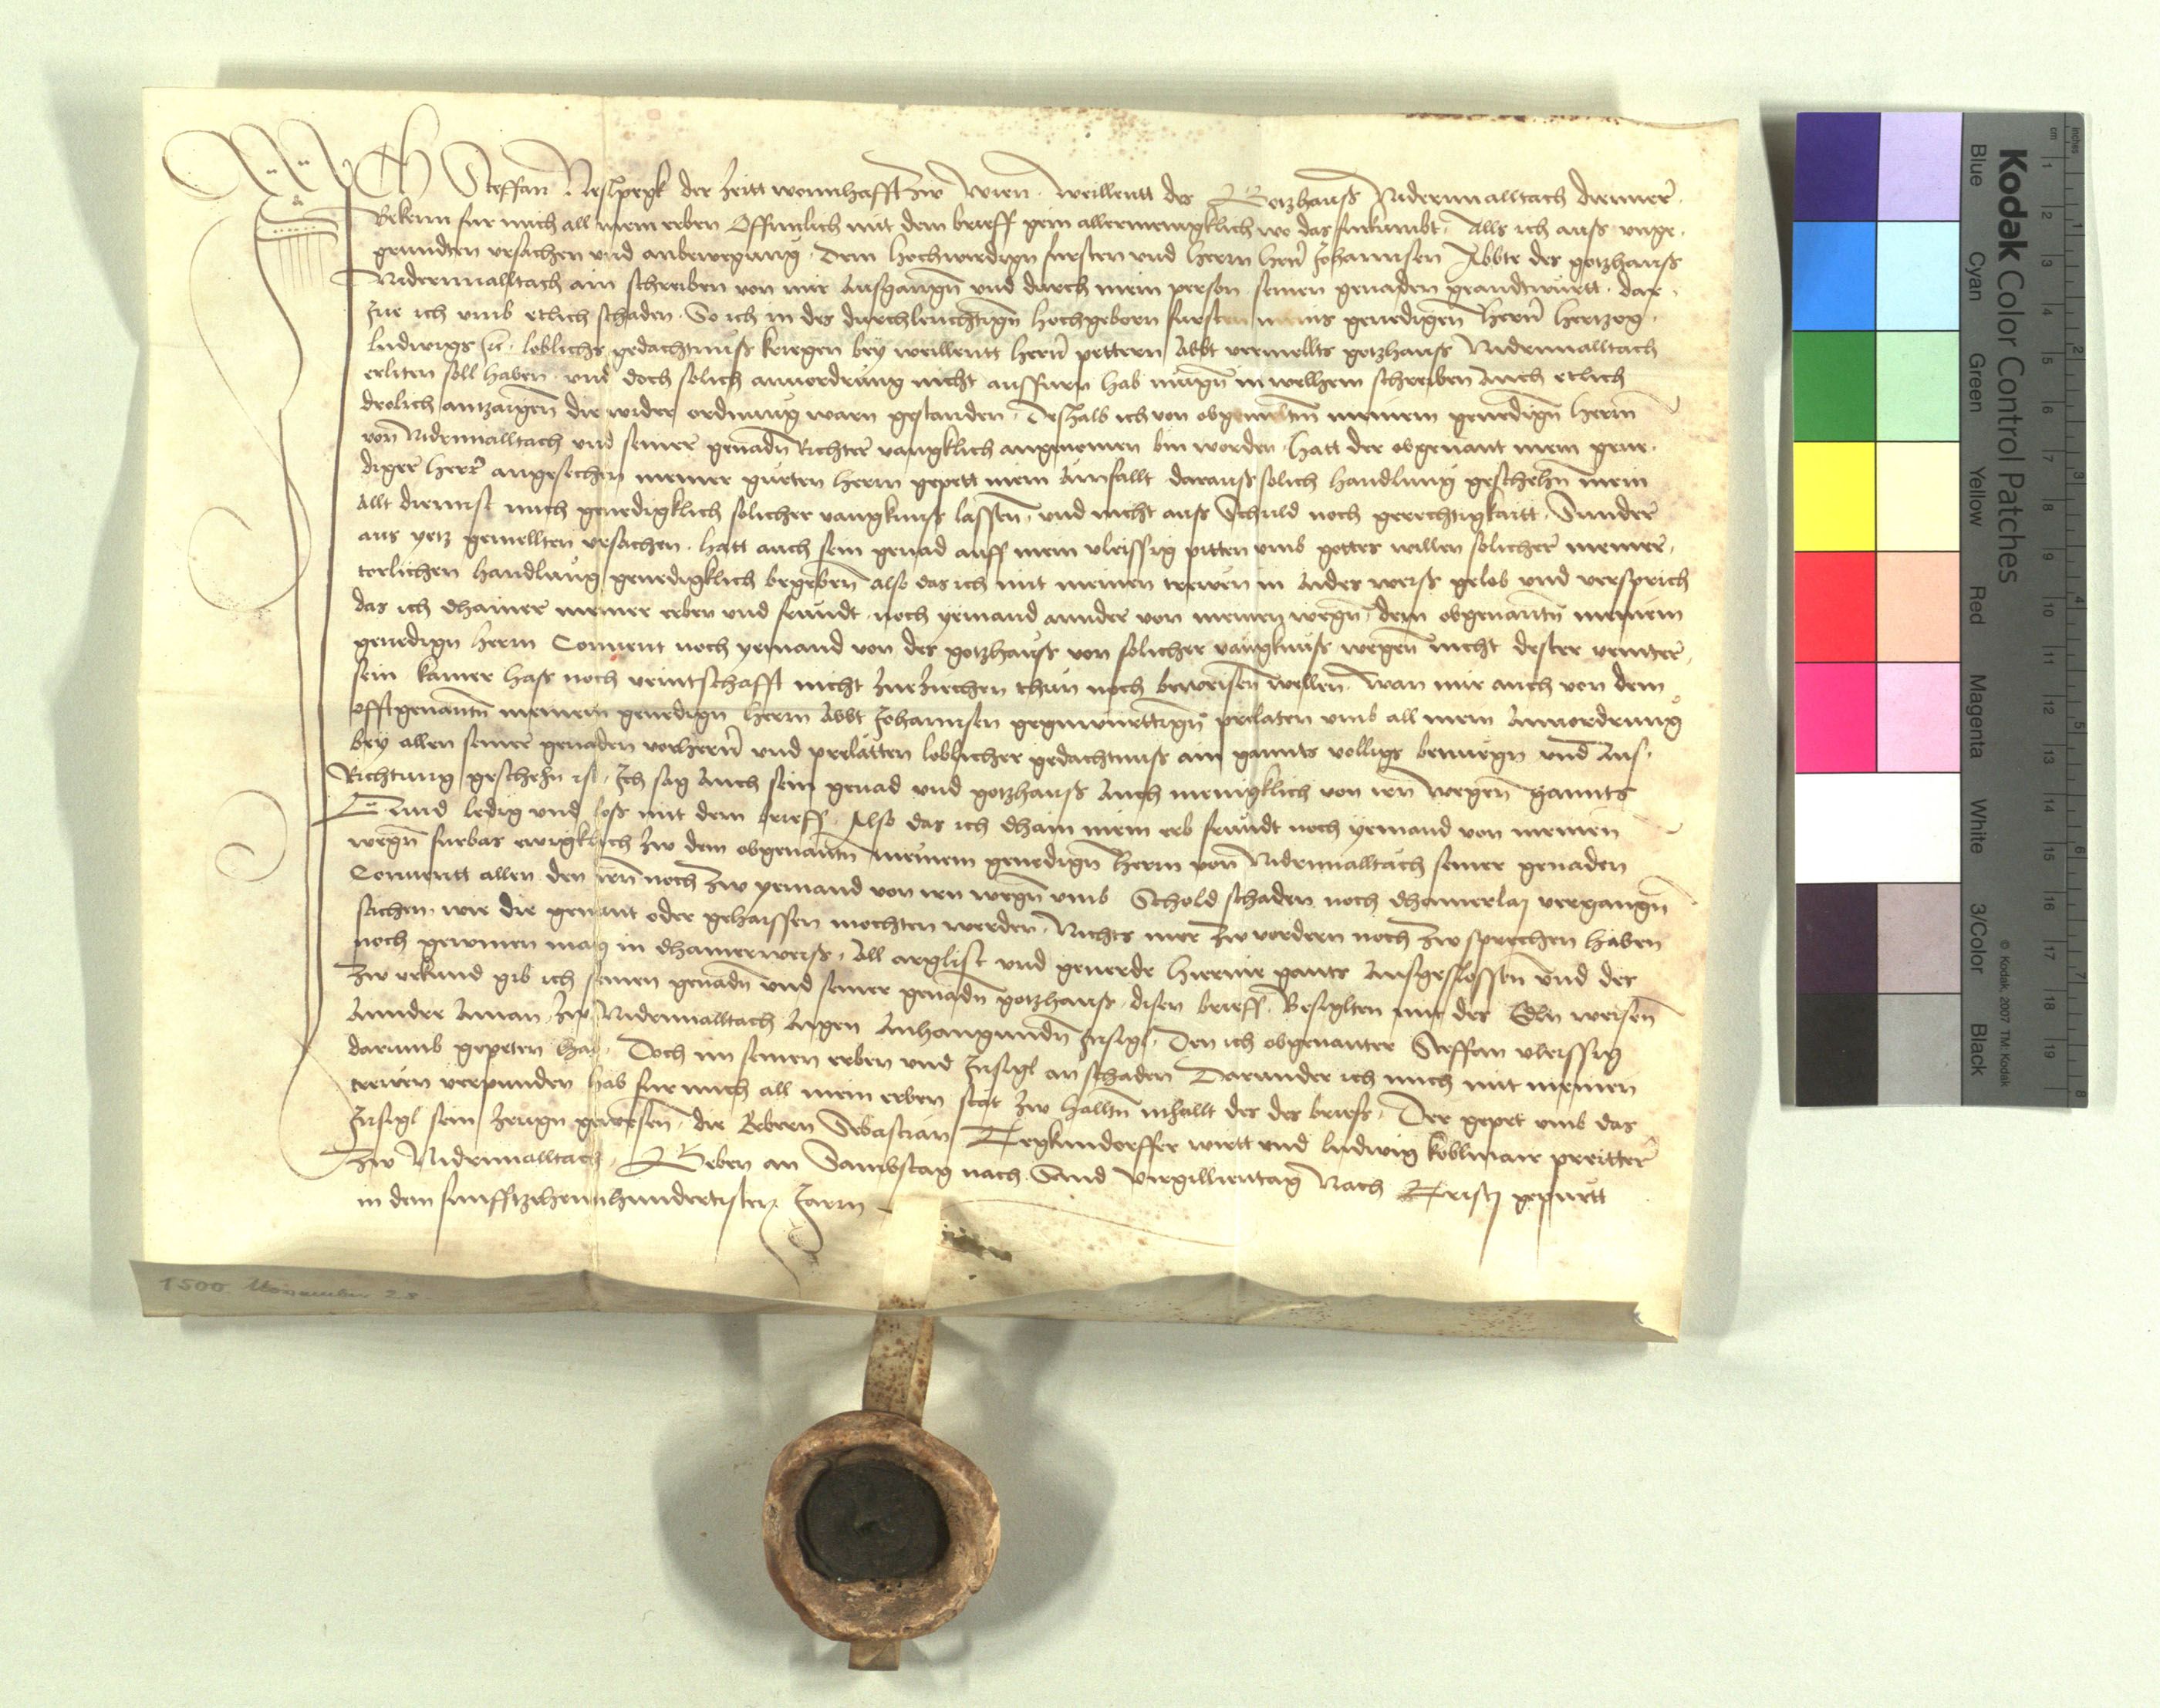 ICh Steffan Neslpegk der Zeitt wonnhafft Zw Wien · Weillentt des Gotzhauß Nidernnalltach dienner ·
Bekenn fur mich all mein erben Offennlich mit dem brieff gein allermenigklich wo das furkumbt · Alls ich auß unge·
grundten ursachen und anbewegung · Dem hochwirdign fursten und herrn hern Johannsen Abbte des gotzhauß
Nidernnalltach ain schreiben von mir Ausganngn und durch mein person seinen genaden geandtwurtt · dar·
Zue ich umb etlich schaden · So ich in des durchleuchtign hochgeborn fursten meins genedigen hern hertzog ·
Ludwigs loblichs gedachtnuß kriegen bey weillentt hern pettern Abbt vermellts gotzhauß Nidernnalltach
erliten soll haben · und doch solich anvordrung nicht ausfurn hab mugn in welhem schreiben Auch etlich
drolich antzaigen die wider ordnung warn gestanden · Deshalb ich von obgemeltm meinem genedign herrn
von Nidernnalltach und seiner genadn Richter vangklich angenomen bin worden · Hatt der obgenant mein gene·
diger herr angesechen meiner gueten herrn gepett mein Ainfallt darauß solich handlung geschehn mein
Allt dienst mich genedigklich solicher vangknuß lassen · und nicht auß Schuld noch gerechtigkaitt · Sunder
aus yetz gemellten ursachen · hatt auch sein genad auff mein vleissig pitten umb gottes willen solicher meiner ·
torlichen handlung genedigklich begeben also das ich mit meinen trewen in Aides weiß gelob und versprich
das ich dhainer meiner erben und freundt · noch yemand annder von meinen wegn · dem obgenantn meinem
genedign herrn Convent noch yemand von des gotzhauß von solicher vangknuß wegen nicht dester veinter ·
sein kainer haß noch veintschafft nicht ZueZiechen thun noch beweisen wellen · Wan mir auch von dem
offtgenantn meinem genedign herrn Abbt Johannsen gegenwurttign prelaten umb all mein Anvordrung
bey allen seiner genaden vorhern und prelatten loblicher gedachtnuß ain gannts volligs benuegn und Aus·
Richtung geschehn ist · Ich sag Auch sein genad und gotzhauß Auch menigklich von irn wegen gannts
quid ledig und loß mit dem brieff · Also das ich dhain mein erb freundt noch yemand von meinen
wegn furbas ewigklich Zw dem obgenantn meinem genedign herrn von Nidernnalltach seiner genaden
Conventt allen den irn noch Zw yemand von irn wegn umb Schold schaden noch dhainerlay vergangn
sachen · wie die genant oder gehaissen mochten werden · Nichts mer Zw vordern noch Zw sprechen haben
noch gewinen mag in dhainerweiß · All arglist und geverde hierine gants Ausgeslossen und des
Zw urkund gib ich seinen genadn und seiner genadn gotzhauß · disen brieff · Besiglten mit des Edln weisen
Annder Aman Zw Nidernnalltach Aigen Anhangunndn Insigl · Den ich obgenanter Steffan vleissig
darumb gepeten hab · Doch im seinen erben und Insigl an schaden Darunder ich mich mit meinen
trewen verpunden hab fur mich all mein erben stat Zw halltn inhallt des des briefs · Der gepet umb das
Insigl sein Zeugn gewesen · die Erbern Sebastian Degkendorffer wirtt und Ludwig koblmair preitter
Zw Nidernnalltach · Geben an Sambstag nach Sand Virgillientag Nach Cristi gepurtt
in dem funfftzehennhundertisten Jarn
1500 November 28
Kodak Color Control Patches
Blue Cyan Green Yellow Red Magenta White 3/Color Black
© Kodak, 2007 TM: Kodak
cm 1 2 3 4 5 6 7 8 9 10 11 12 13 14 15 16 17 18 19
inches 1 2 3 4 5 6 7 8